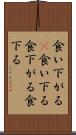 食い下がる
×食い下る
食下がる食
下る